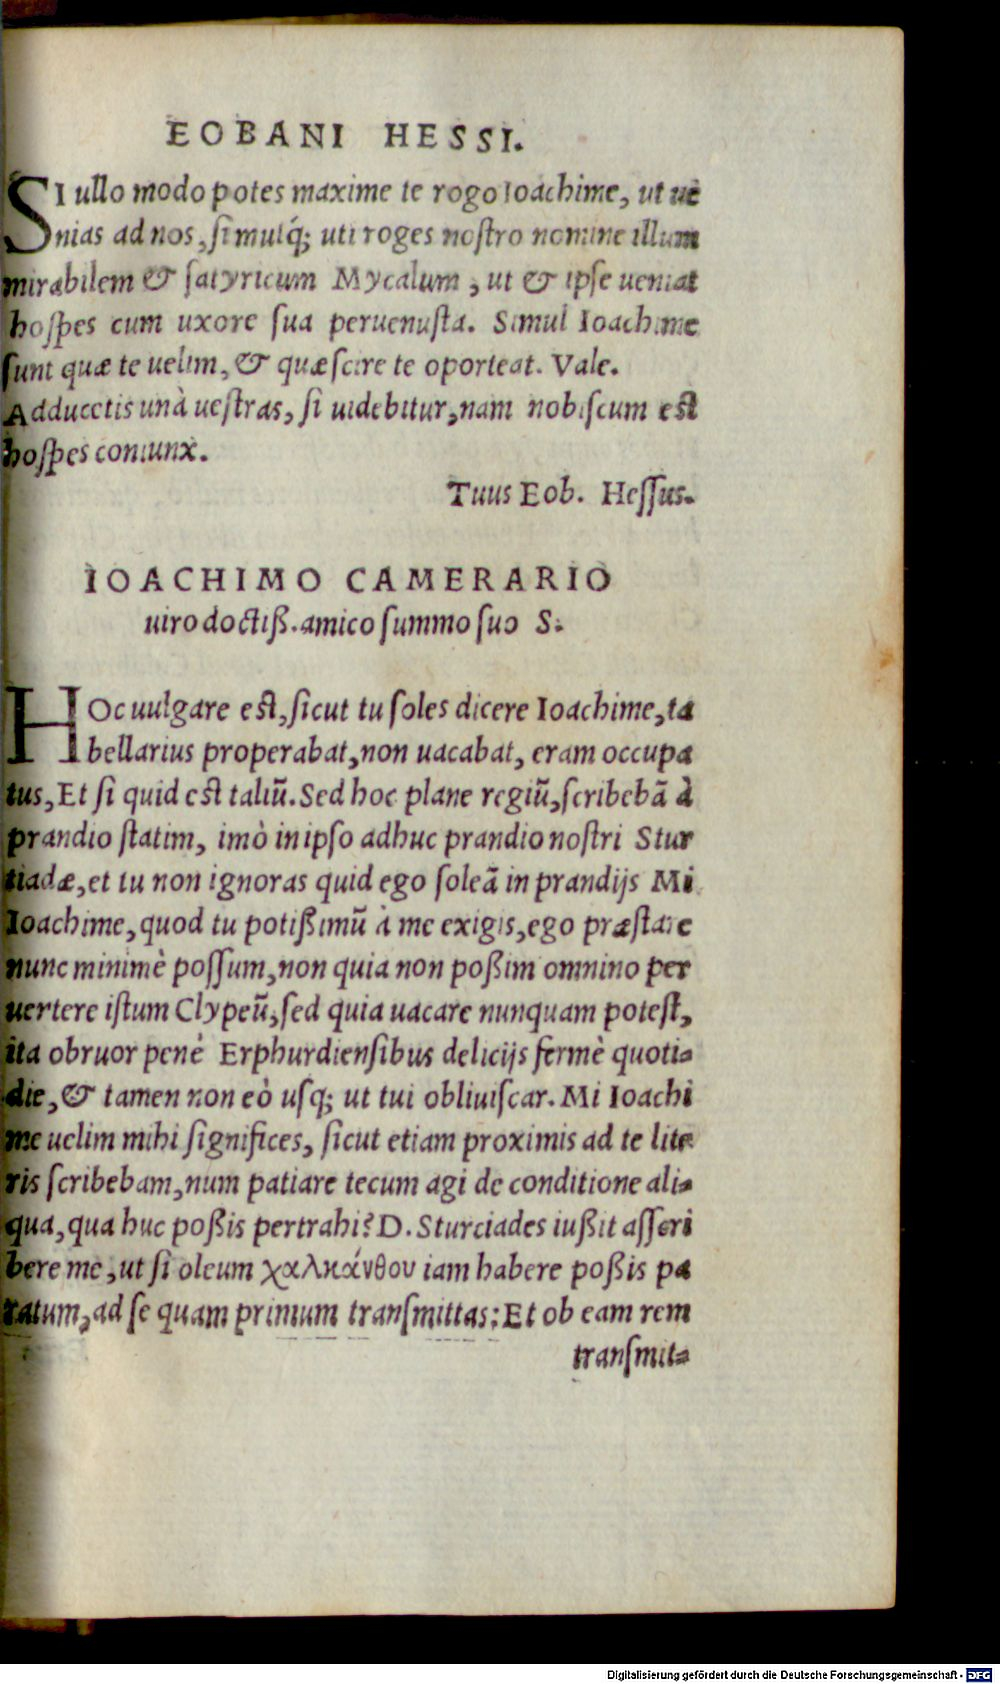 EOBANI HESSI.
SI ullo modo potes maxime te rogo Ioachime, ut ue
nias ad nos, simulq́; uti roges nostro nomine illum
mirabilem & satyricum Mycalum, ut & ipse ueniat
hospes cum uxore sua peruenusta. Simul Ioachime
sunt quæ te uelim, & quæ scire te oporteat. Vale.
Adducetis unà uestras, si uidebitur, nam nobiscum est
hospes coniunx.
Tuus Eob. Hessus.
IOACHIMO CAMERARIO
uiro doctiß. amico summo suo S.
HOc uulgare est, sicut tu soles dicere Ioachime, ta
bellarius properabat, non uacabat, eram occupa
tus, Et si quid est taliũ. Sed hoc plane regiũ, scribebã à
prandio statim, imò in ipso adhuc prandio nostri Stur
tiadæ, et tu non ignoras quid ego soleã in prandijs Mi
Ioachime, quod tu potißimũ à me exigis, ego præstare
nunc minimè possum, non quia non poßim omnino per
uertere istum Clypeũ, sed quia uacare nunquam potest,
ita obruor penè Erphurdiensibus delicijs fermè quoti-
die, & tamen non eò usq; ut tui obliuiscar. Mi Ioachi
me uelim mihi significes, sicut etiam proximis ad te lite
ris scribebam, num patiare tecum agi de conditione ali-
qua, qua huc poßis pertrahi? D. Sturciades iußit asseri
bere me, ut si oleum χαλκάνθου iam habere poßis pa
ratum, ad se quam primum transmittas: Et ob eam rem
transmit-
Digitalisierung gefördert durch die Deutsche Forschungsgemeinschaft - DFG